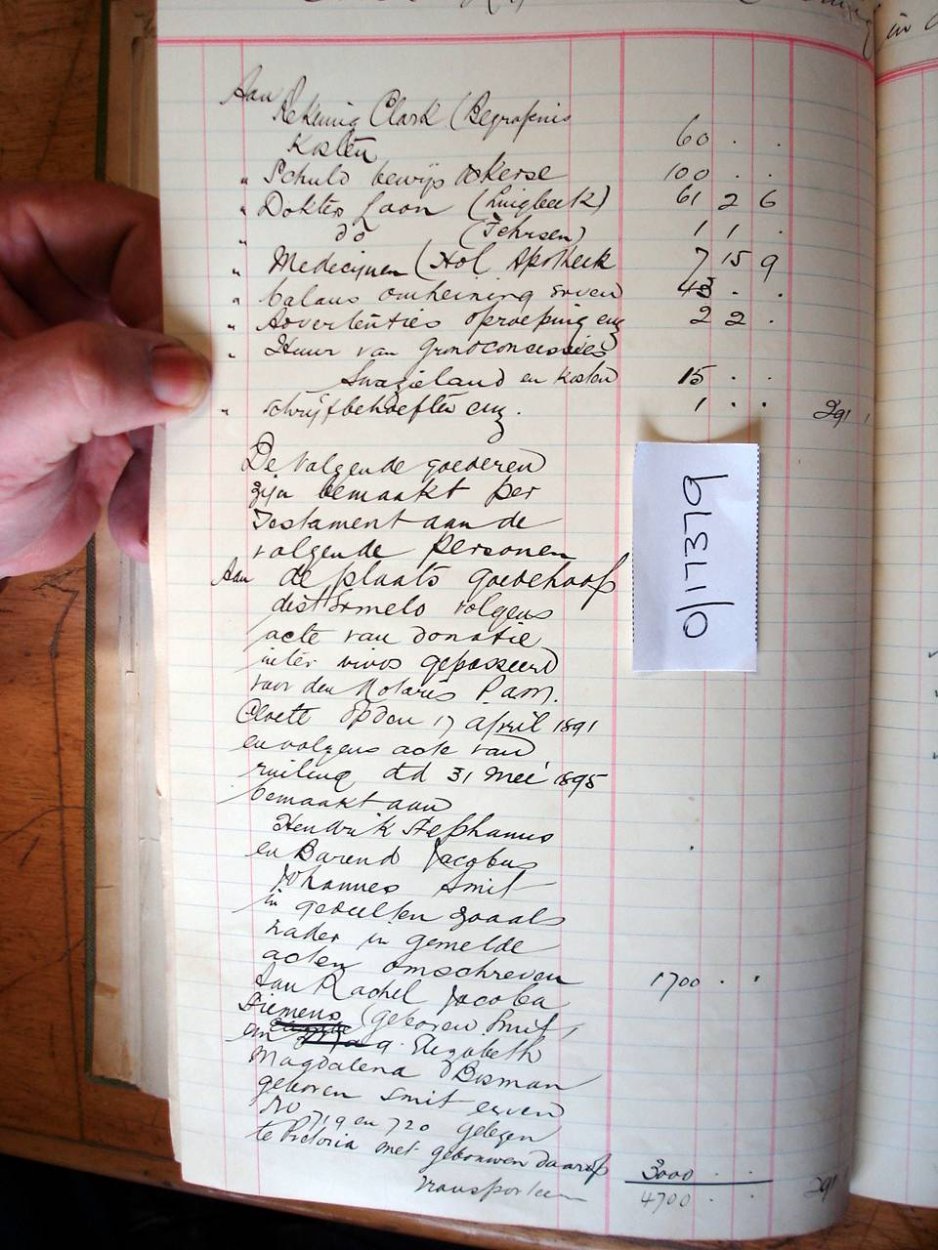 Aan
Rekenig Clark (Begrafenis
Kosten 60 . .
" Schuld bewijs Okerse 100 . .
" Dokter Loon (Luigbeek) 61 2 6
" do (Tehrsen) 1 1 .
" Medecijnen (Hol Apotheek 7 15 9
" balans omheining erven 43 . .
" Advertenties oproeping enz 2 2 .
" Huur van Grondconcessies
Swazieland en kosten 15 . .
" Schrijfbehoeften enz. 1 . . 291 1
De volgende goederen
zijn bemaakt per
Testament aan de
volgende Personen
Aan de plaats Goedehoop
dist Ermelo volgens
acte van donatie
inter vivos gepasseerd
voor den Notaris Pam.
Cloete op den 17 april 1891
en volgens acte van
ruiling dd 31 Mei 1895
bemaakt aan
Hendrik Stephanus
en Barend Jacobus
Johannes Smit
in gedeelten zooals
nader in gemelde
acten omschreven 1700 . .
Aan Rachel Jacoba
Siemens (geboren Smit,
en Elizabeth
Magdalena Bosman
geboren Smit erven
No 719 en 720 gelegen
te Pretoria met gebouwen daarop 3000 . .
Transporteen 4700 . . 291 1
0/17379